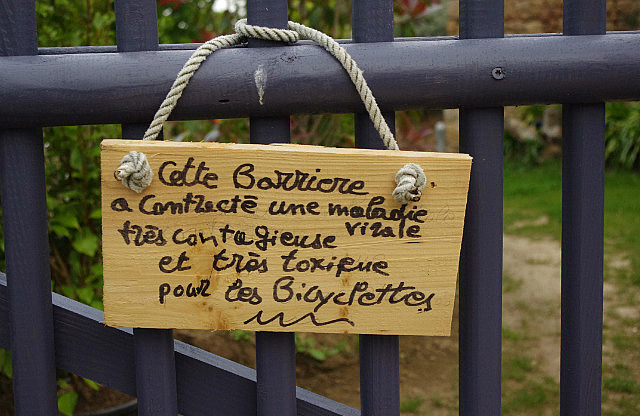 Cette Barriere
a Contracté une maladie
virale
très contagieuse
et très toxique
pour les Bicyclettes